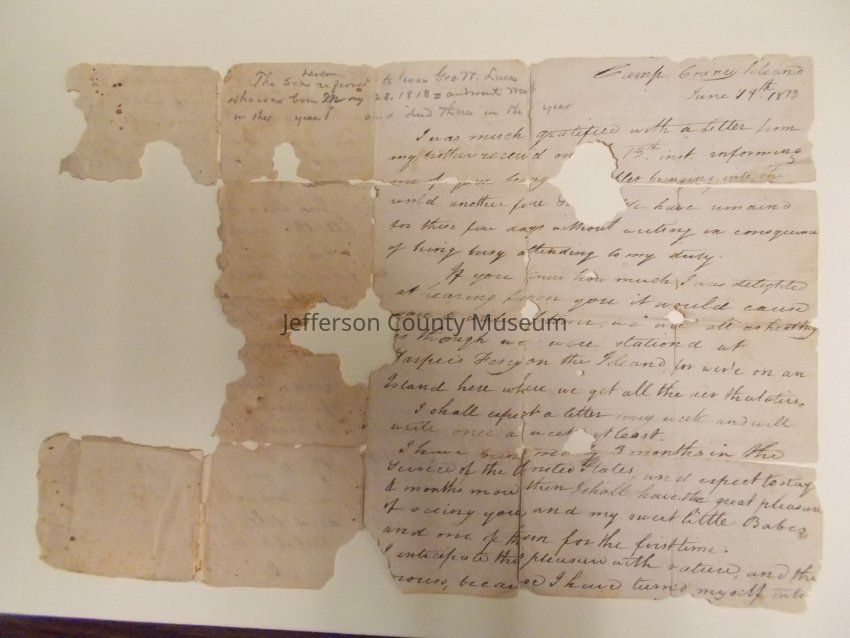 The son herein refered to was Geo W. Lucas
who was born May 23. 1813 = and went West
in the year and died there in the year
Camp Craney Island
June 19th 1813
I was much gratified with a letter from
my brother receivd on 13th inst informing
me of your being bringing into the
world another fine We have remaind
for these few days without writing in consequence
of being busy attending to my duty.
If you knew how much I was delighted
at hearing from you it would cause
you we are all as healthy
as though we were stationd at
Harpers Ferry on the Island, for we're on an
Island here where we get all the air that stirs.
I shall expect a letter every week and will
write once a week at least.
I have been 3 months in the
Service of the United States, and expect to stay
4 months more then I shall have the great pleasure
of seeing you and my sweet little Babes
and one of them for the first time.
I anticipate the pleasure with rature, and the
more, because I have turnd myself into
Jefferson County Museum